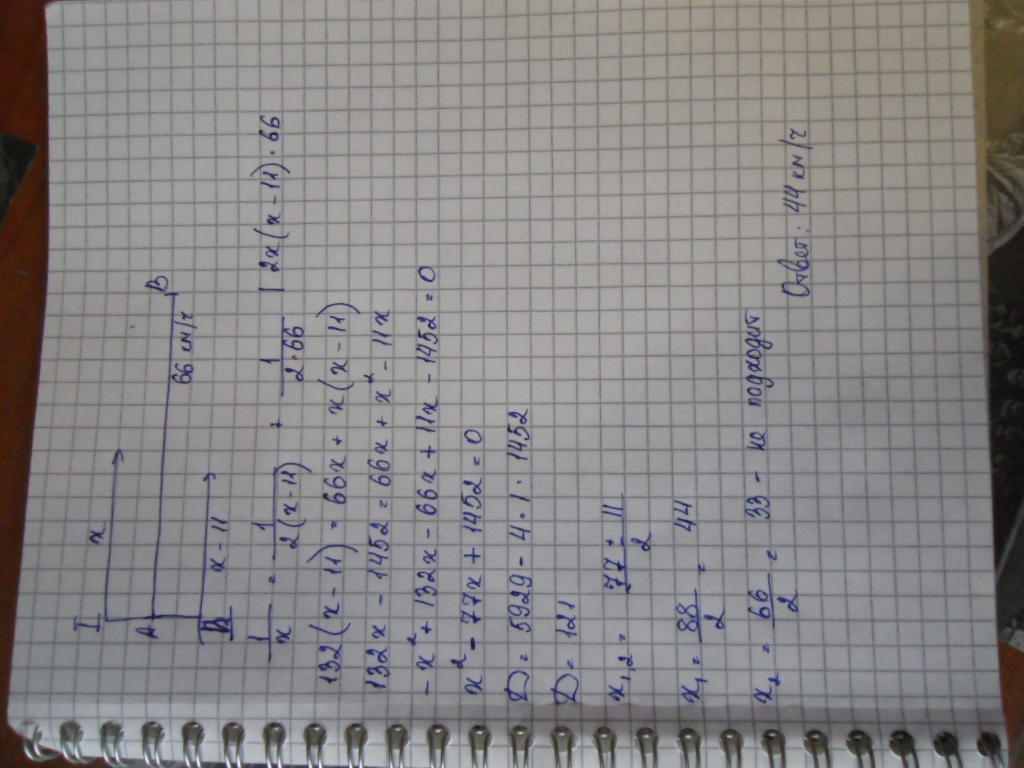 I x
A 66 км/ч B
II x - 11
1/x = 1/(2(x-11)) + 1/(2·66) | 2x(x-11)·66
132(x-11) = 66x + x(x-11)
132x - 1452 = 66x + x² - 11x
-x² + 132x - 66x + 11x - 1452 = 0
x² - 77x + 1452 = 0
D = 5929 - 4·1·1452
D = 121
x₁,₂ = (77 ± 11)/2
x₁ = 88/2 = 44
x₂ = 66/2 = 33 - не подходит
Ответ: 44 км/ч